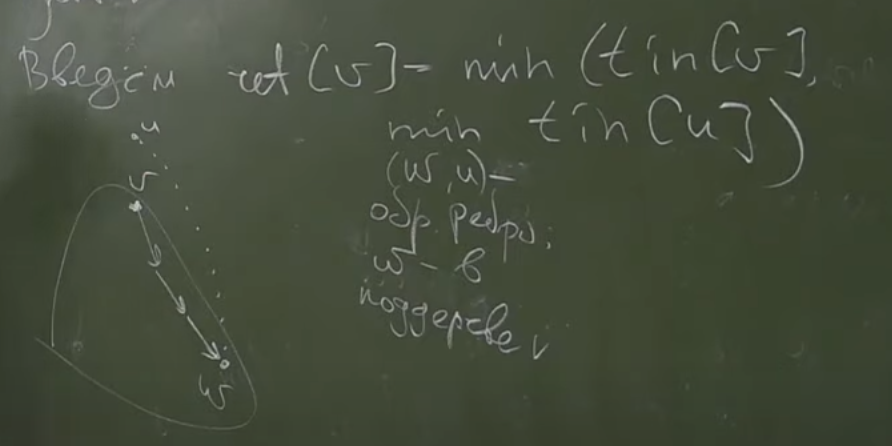 Введём ret[v] = min (tin[v],
min tin[u])
(w,u) –
обр. ребро,
w – в
поддереве v
u
v
w